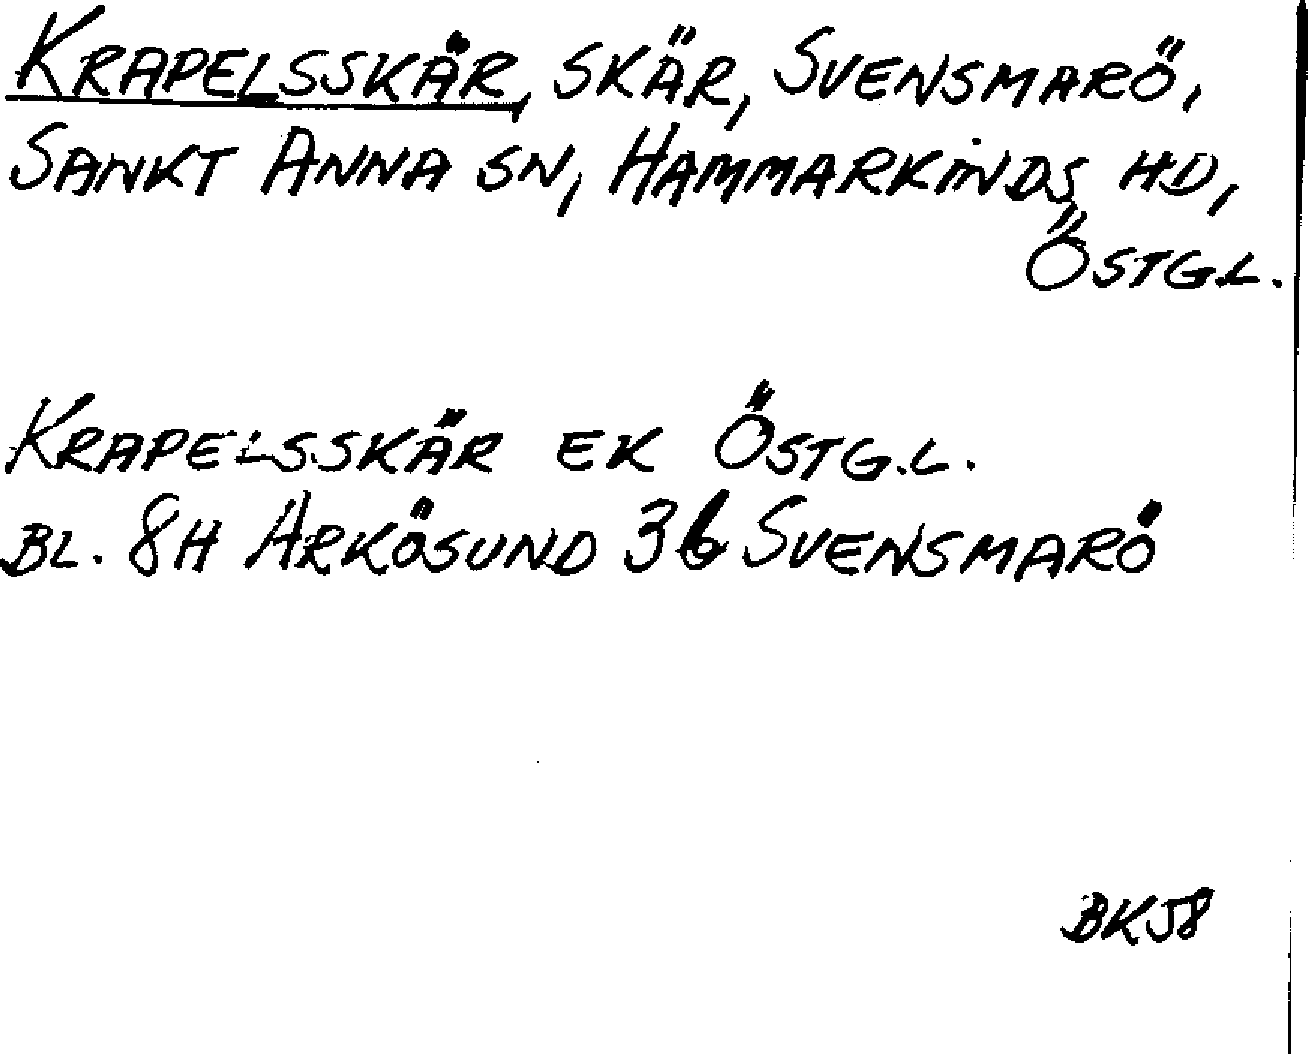 KRAPELSSKÄR, SKÄR, SVENSMARÖ,
SANKT ANNA SN, HAMMARKINDS HD,
ÖSTG.L.
KRAPELSSKÄR EK ÖSTG.L.
BL. 8H ARKÖSUND 3b SVENSMARÖ
BK58